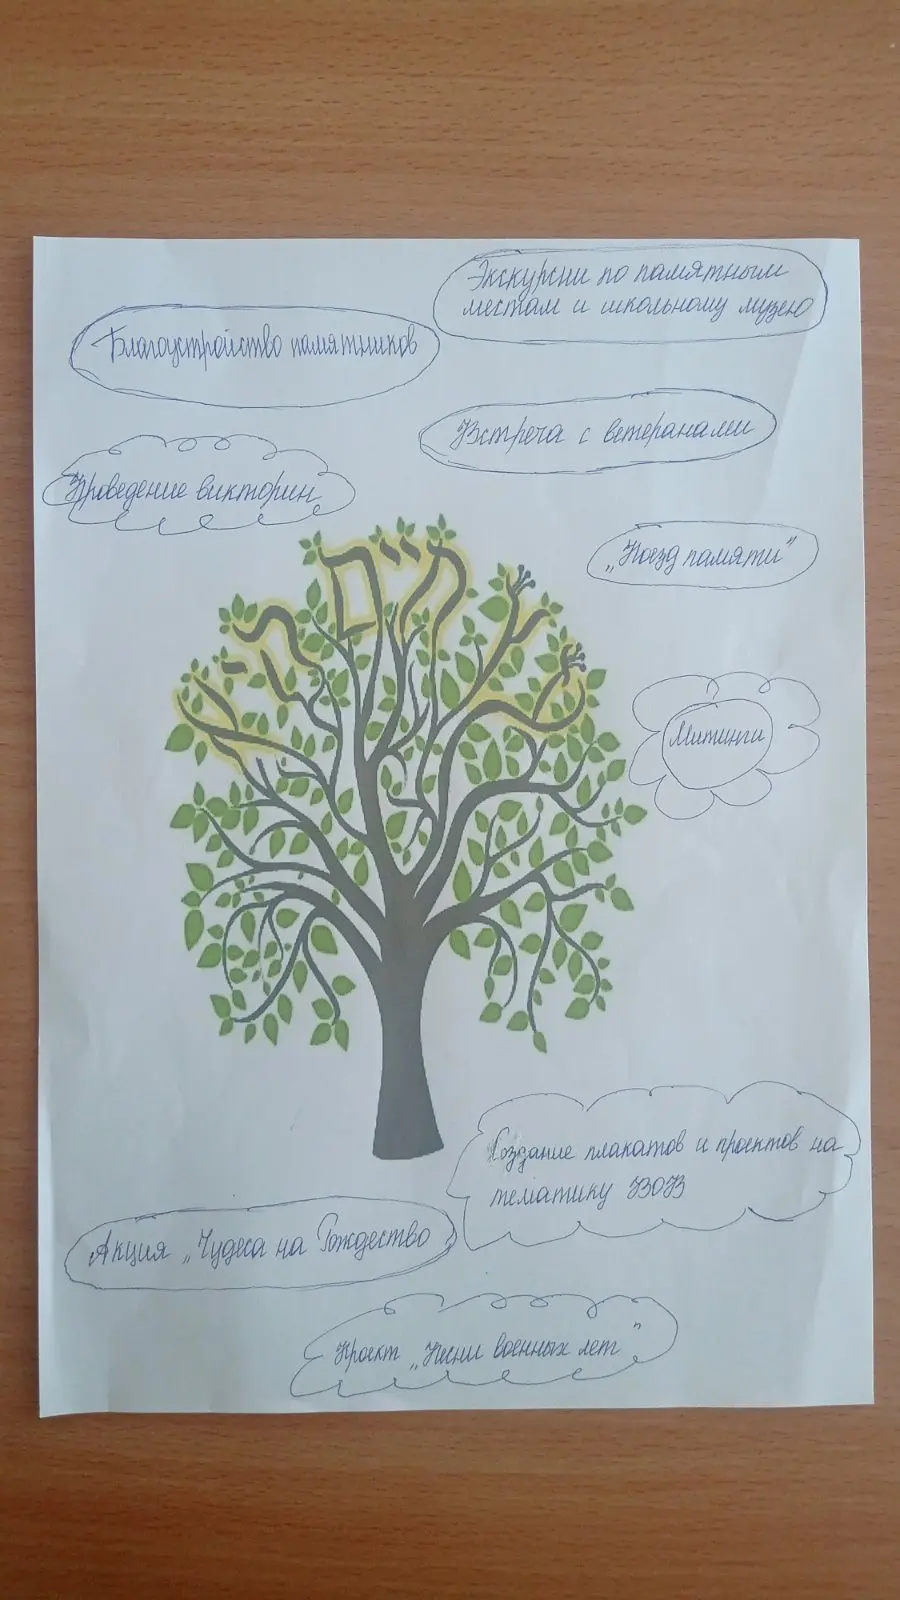 Экскурсии по памятным
местам и школьному музею
Благоустройство памятников
Встреча с ветеранами
Проведение викторин
„Поезд памяти"
עץ חיים היא
Митинги
Создание плакатов и проектов на
тематику ВОВ
Акция „Чудеса на Рождество
Проект „Песни военных лет"